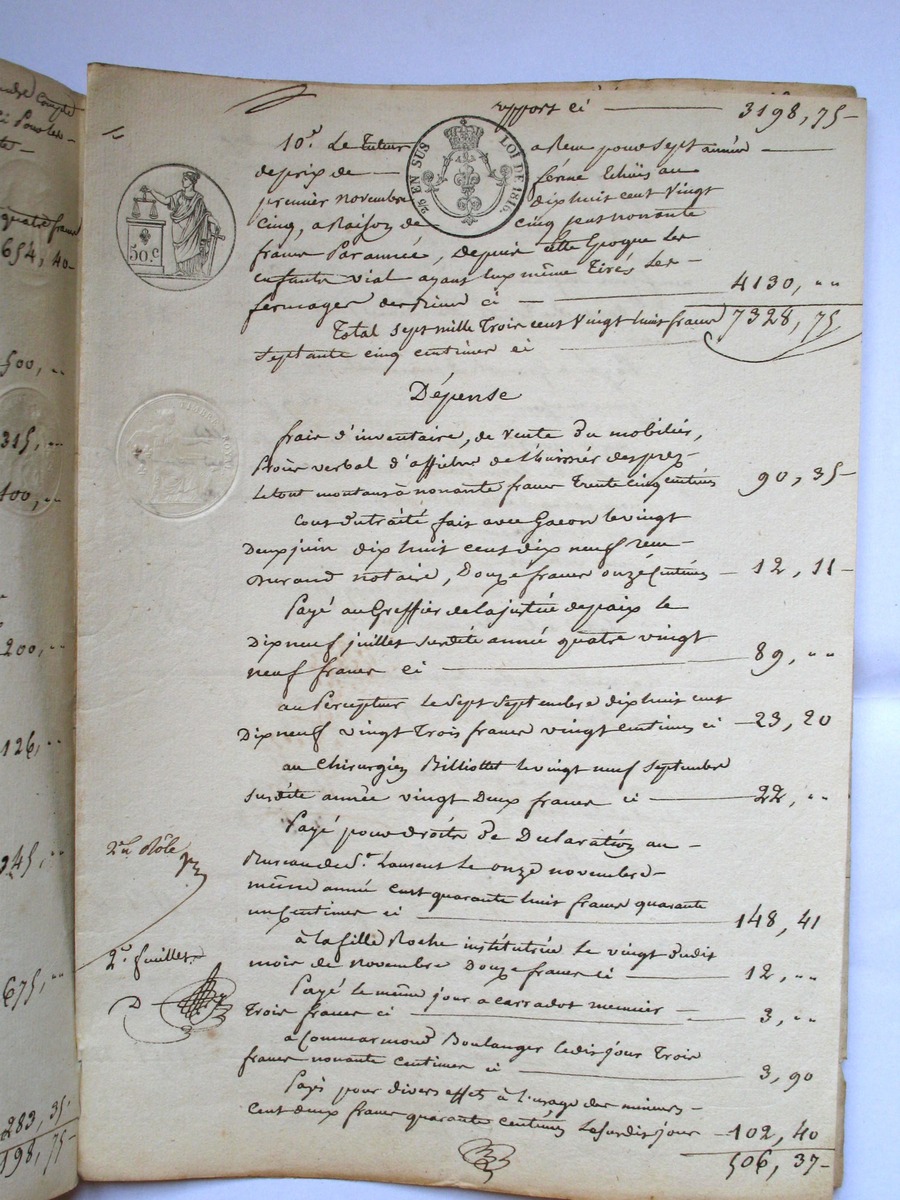 andre Compte
i Pour les
te —
quatre francs
654, 40
500, ..
315, ..
400, ..
200, ..
126, ..
345, ..
675, ..
283, 35
198, 75
rapport ci — 3198, 75
LOI DE 1816.
EN SUS
50.c
10.e Le Tuteur a Reçu pour sept années —
de prix de — ferme Echuës au
premier novembre dix huit cent Vingt
Cinq, a Raison de cinq cent nonante
francs Par année, Depuis cette Epoque Les
enfants vial ayant Eux même Tirés Les
fermages des ci — 4130, " "
Total Sept mille Trois cent Vingt huit francs 7328, 75
Septante cinq centimes ci
Dépense
frais d'inventaire, de Vente du mobilier,
Procès verbal d'affiche de l'huissier desprez
Le tout montant à nonante francs Trente cinq centimes 90, 35
Cout du traité fait avec Gacon le vingt
Deux juin dix huit cent dix neuf reçu
Durand notaire, Douze francs onze Centimes — 12, 11
Payé au Greffier de la justice de paix le
Dix neuf juillet susdite année quatre vingt
neuf francs ci — 89, " "
au Percepteur le Sept Septembre dix huit cent
Dix neuf vingt Trois francs vingt Centimes ci — 23, 20
au Chirurgien Billiottet le vingt neuf Septembre
susdite année vingt Deux francs ci — 22, "
Payé pour droits de Declaration au —
Bureau de St. Laurent Le onze novembre
même année Cent quarante huit francs quarante
un Centimes ci — 148, 41
à la fille Roche institutrice Le vingt dudit
mois de novembre Douze francs ci — 12, " "
Payé le même jour a Carradot menuier —
Trois francs ci — 3, " "
a Commarmond Boulanger ledit jour Trois
francs nonante centimes ci — 3, 90
Payé pour divers effets à l'usage des mineurs
Cent deux francs quarante centimes Le susdit jour — 102, 40
506, 37
2.e Rôle
2.e feuillet